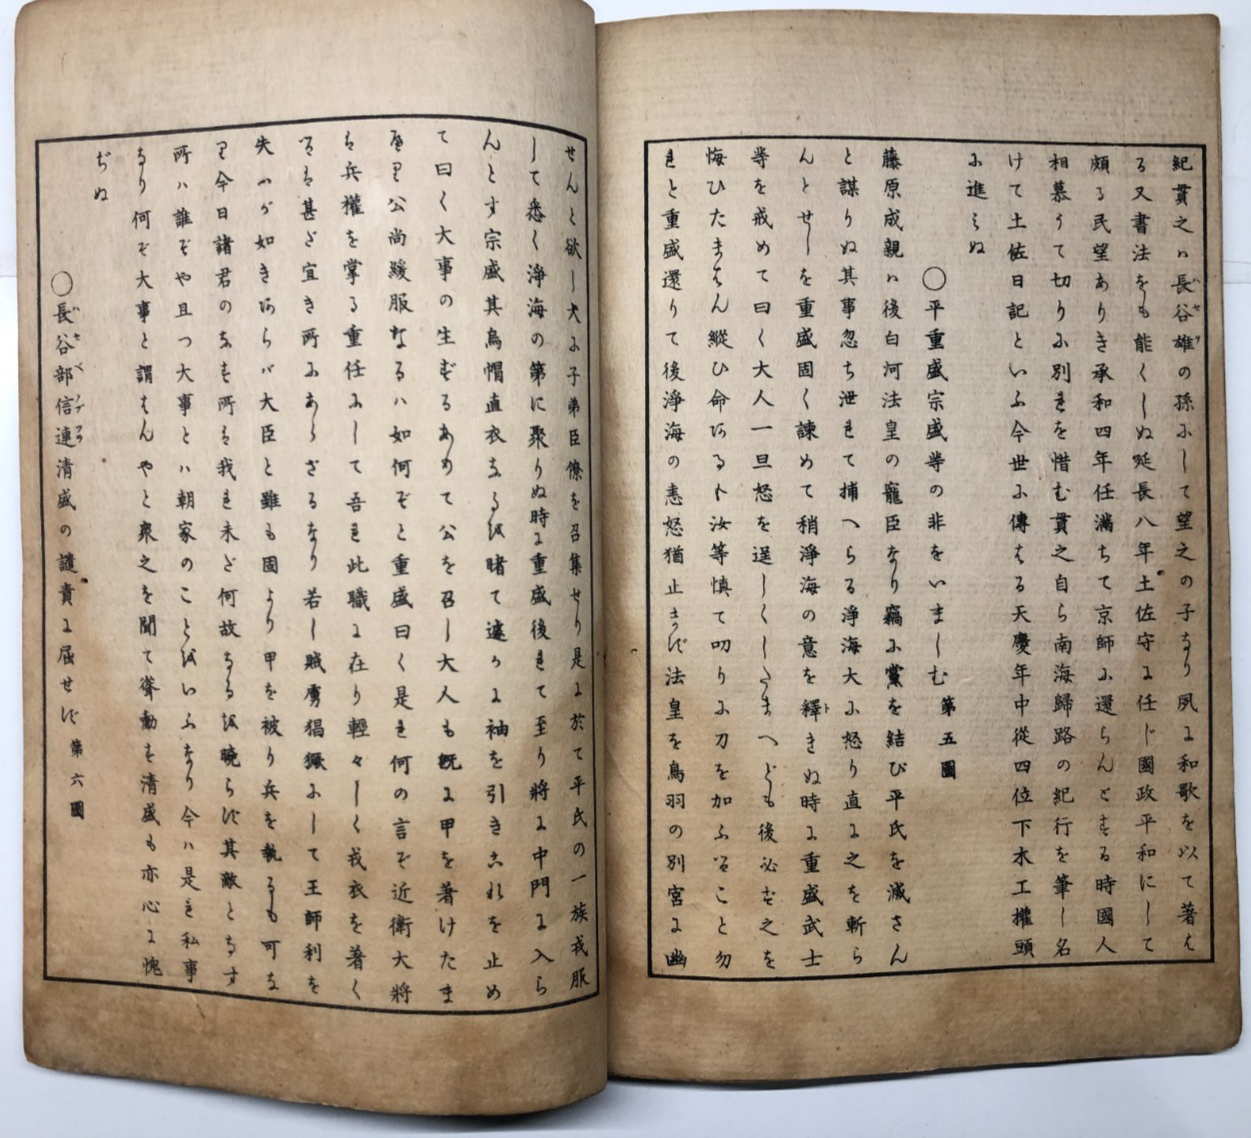 紀貫之ハ長谷雄の孫にして望之の子なり夙に和歌を以て著は
る又書法をも能くしぬ延長八年土佐守に任じ國政平和にして
頗る民望ありき承和四年任滿ちて京師に還らんとする時國人
相慕うて切りに別れを惜む貫之自ら南海歸路の紀行を筆し名
けて土佐日記といふ今世に傳はる天慶年中從四位下木工權頭
に進みぬ
○平重盛宗盛等の非をいましむ 第五圖
藤原成親ハ後白河法皇の寵臣なり竊に黨を結び平氏を滅さん
と謀りぬ其事忽ち泄れて捕へらる淨海大に怒り直に之を斬ら
んとせしを重盛固く諫めて稍淨海の意を釋きぬ時に重盛武士
等を戒めて曰く大人一旦怒を逞しくしたまへども後必ず之を
悔ひたまはん縱ひ命あるト汝等慎て叨りに刀を加ふること勿
れと重盛還りて後淨海の恚怒猶止まず法皇を鳥羽の別宮に幽
せんと欲し大に子弟臣僚を召集せり是に於て平氏の一族戎服
して悉く淨海の第に聚りぬ時に重盛後れて至り將に中門に入ら
んとす宗盛其烏帽直衣なるを睹て遽かに袖を引きこれを止め
て曰く大事の生ずるありて公を召し大人も既に甲を著けたま
へり公尚緩服なるハ如何ぞと重盛曰く是れ何の言ぞ近衛大將
は兵權を掌る重任にして吾れ此職に在り輕々しく戎衣を著く
るは甚ざ宜き所にあらざるなり若し賊虜猖獗にして王師利を
失ふが如きあらバ大臣と雖も固より甲を被り兵を執るも可な
り今日諸君のなす所は我れ未ど何故なるを曉らず其敵となす
所ハ誰ぞや且つ大事とハ朝家のことをいふなり今ハ是れ私事
なり何ぞ大事と謂はんやと衆之を聞て聳動す清盛も亦心に愧
ぢぬ
○長谷部信連清盛の譴責に屈せず 第六圖